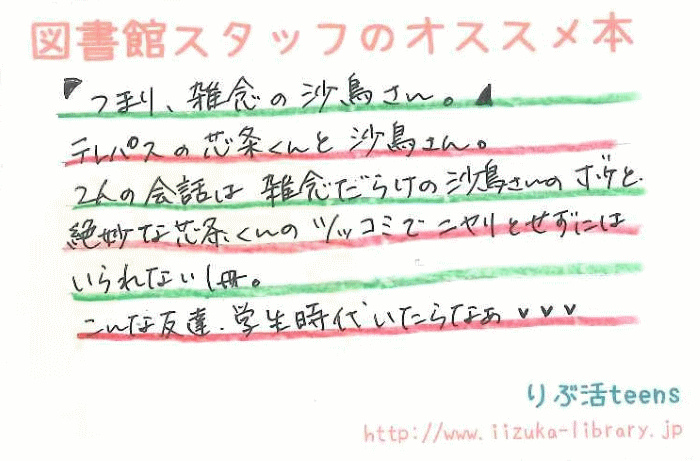 図書館スタッフのオススメ本
『つまり、雑念の沙鳥さん。』
テレパスの芯条くんと沙鳥さん。
2人の会話は雑念だらけの沙鳥さんのボケと
絶妙な芯条くんのツッコミでニヤリとせずには
いられない1冊。
こんな友達、学生時代いたらなぁ♥♥♥
りぶ活teens
http://www.iizuka-library.jp